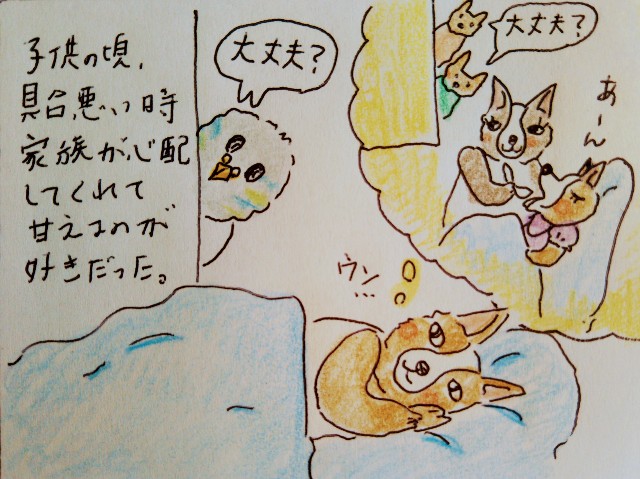 子供の頃、
具合悪い時
家族が心配
してくれて
甘えるのが
好きだった。
大丈夫?
大丈夫?
あーん
ウン…